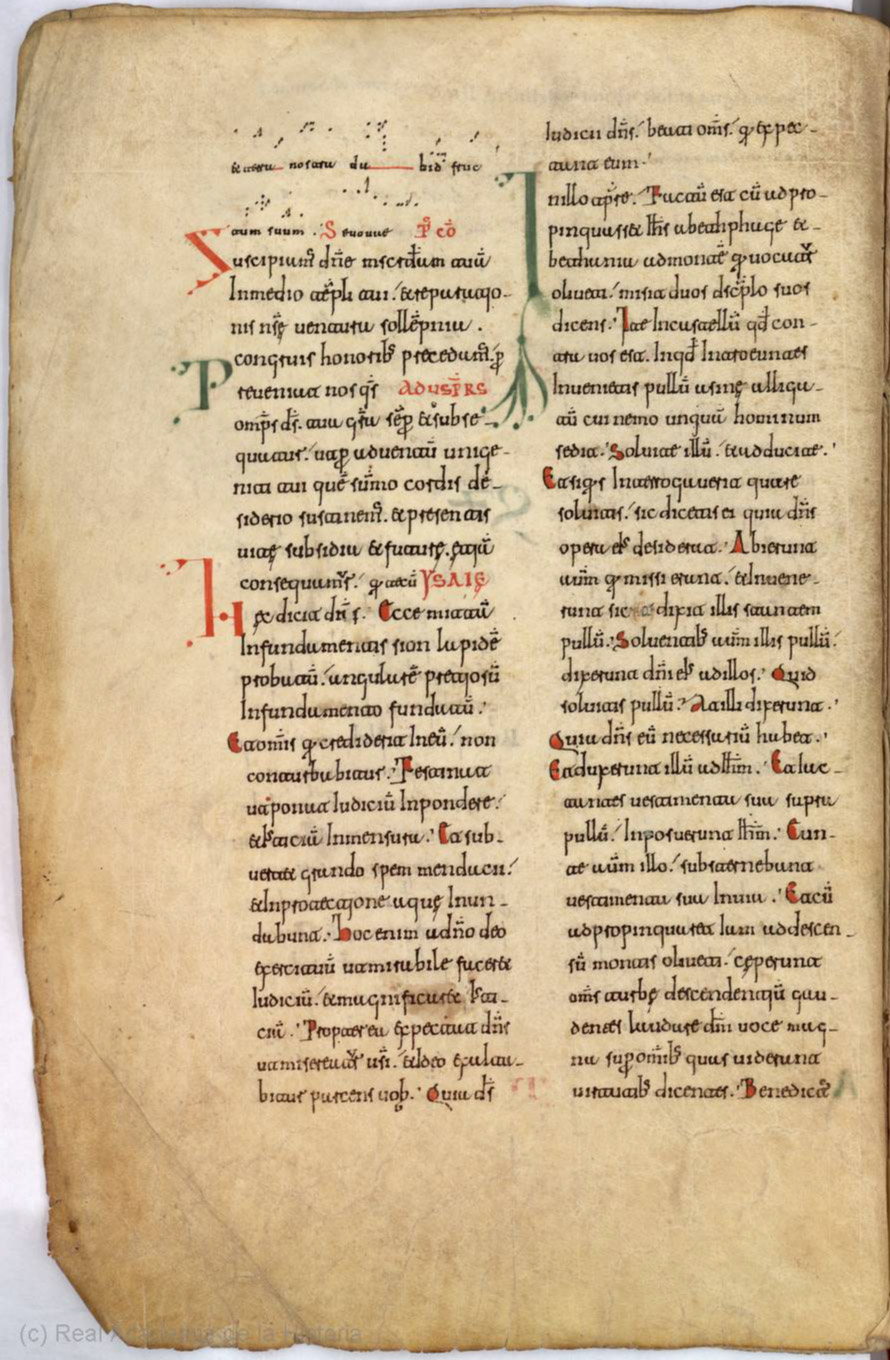 & terra nostra du bit fruc
tum suum. Seuouae Pꝰ cō
Suscipiamꝰ dn̄e miscd̄iam tuā
In medio tēpli tui. & reparatjo-
nis nr̄ę uentura sollēpnia.
congruis honoribꝰ precedamꝰ. ꝑ
Preueniat nos qs̄ AD VSPRS
omps ds̄. tua gr̄a sēꝑ & subse-
quatur. ut ꝑ aduentū unige-
niti tui quē sūmo cordis dē-
siderio sustinemꝰ. & presentis
uitę subsidia & futurę. etiā
consequamꝰ. ꝑ YSAIĘ
Hęc dicit dn̄s. Ecce mitā
In fundamentis sion lapidē
probatū. angularē pretjosū
In fundamento fundatū.
Et om̄is qͥ crediderit In eū. non
conturbabitur. Fes
ut ponat Iudiciū In pondere.
& Iustitiū In mensura. Et sub-
uertet grando spem mendacii.
& In protectjone aquę Inun-
dabunt. Hoc enim a dn̄o deo
exercituū ut mirabile faceret
Iudiciū. & magnificaret Iusti-
ciā. Propterea expectat dn̄s
ut misereatꝰ uri. & Ideo exalta-
bitur parcens uob. Quia ds̄
Iudicii dn̄s. beati om̄s. qͥ expec-
tant eum.
In illo tp̄re. Factū est cū adpro-
pinquasset Ihs̄ a bethphage &-
bethania ad montē qͥ uocatꝰ
oliueti. misit duos discip̄lo suos
dicens. Ite In castellū qd̄ con-
tra uos est. In qd̄ Introeuntes
Inuenietis pullū asinę alliga-
tū cui nemo unquā hominum
sedit. Soluite illū. & adducite.
Et si qͥs Interrogauerit quare
soluitis. sic dicetis ei quia dn̄s
opera eiꝰ desiderat. Abierunt
autm̄ qͥ missi erant. & Inuene-
runt sic dixit illis stantem
pullū. Soluentibꝰ autm̄ illis pullū.
dixerunt dn̄i eiꝰ ad illos. Quid
soluitis pullū? At illi dixerunt.
Quia dn̄s eū necessariū habet.
Et duxerunt illū ad Ihm̄. Et Iac-
tantes uestimenta sua supra
pullū. Inposuerunt Ihm̄. Eun-
te autm̄ illo. substernebant
uestimenta sua In uia. Et cū
adpropinquaret Iam ad descen-
sū montis oliueti. cęperunt
om̄s turbę descendentiū gau-
dentes laudare dm̄ uoce mag-
na sup om̄ibꝰ quas uiderunt
uirtutibꝰ dicentes. Benedictꝰ
(c) Real Academia de la Historia